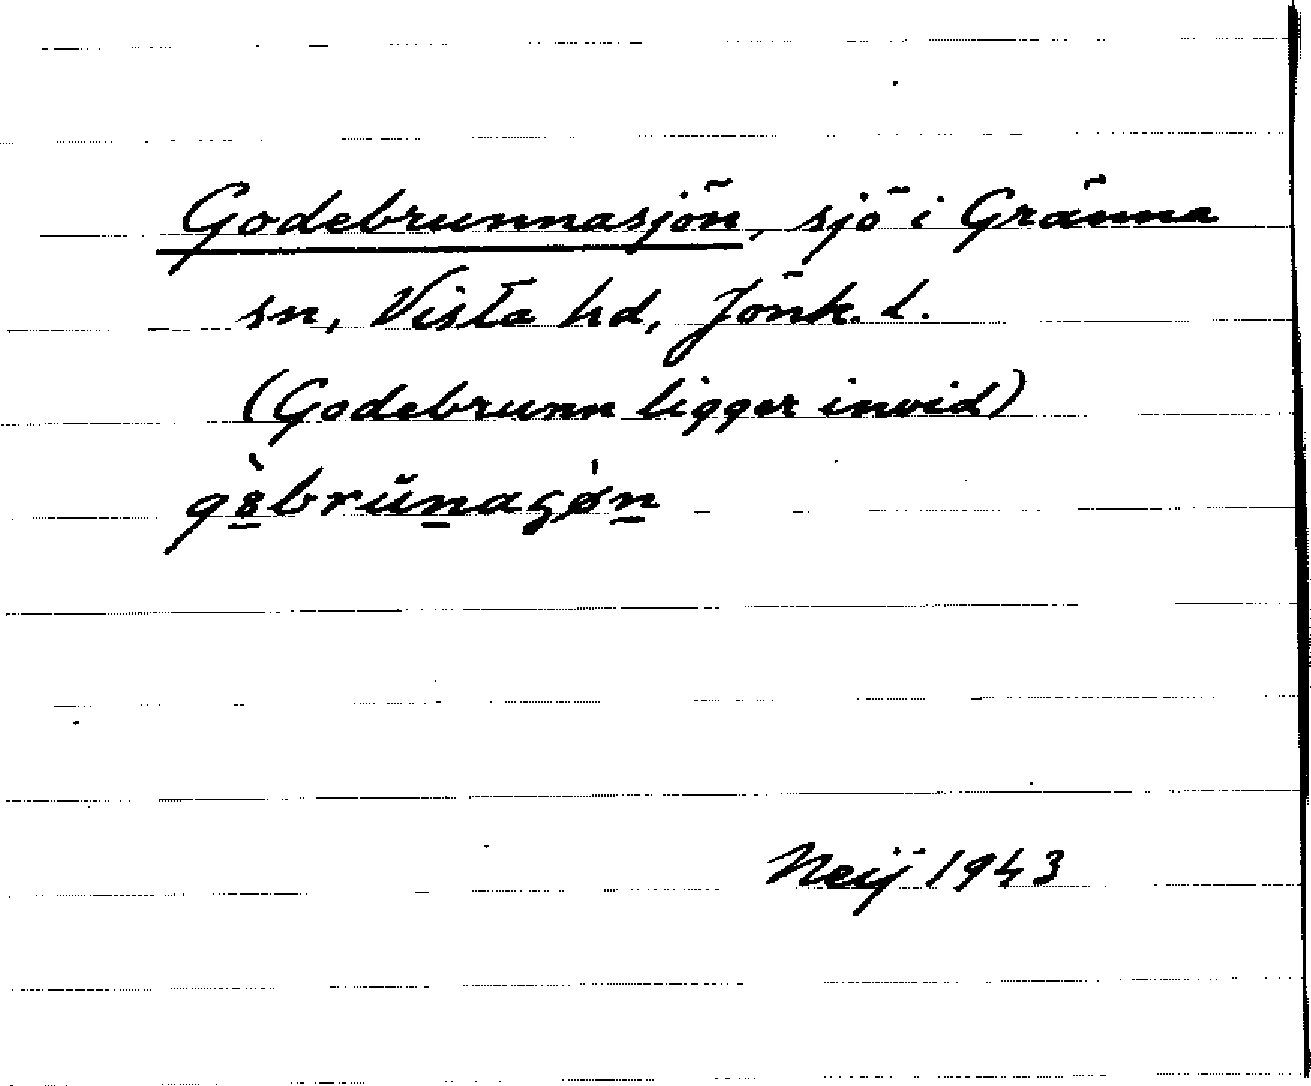 Godebrunnasjön, sjö i Gränna
sn, Vista hd, Jönk. l.
(Godebrunn ligger invid)
Neij 1943